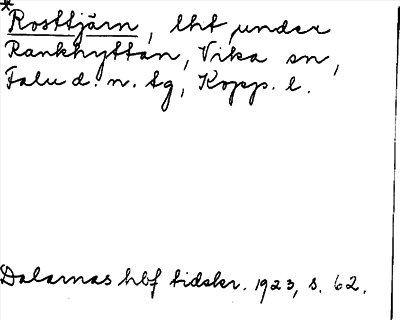 *Rosttjärn, lht under
Rankhyttan, Vika sn,
Falu d. n. tg, Kopp. l.
Dalarnas hbf tidskr. 1923, s. 62.